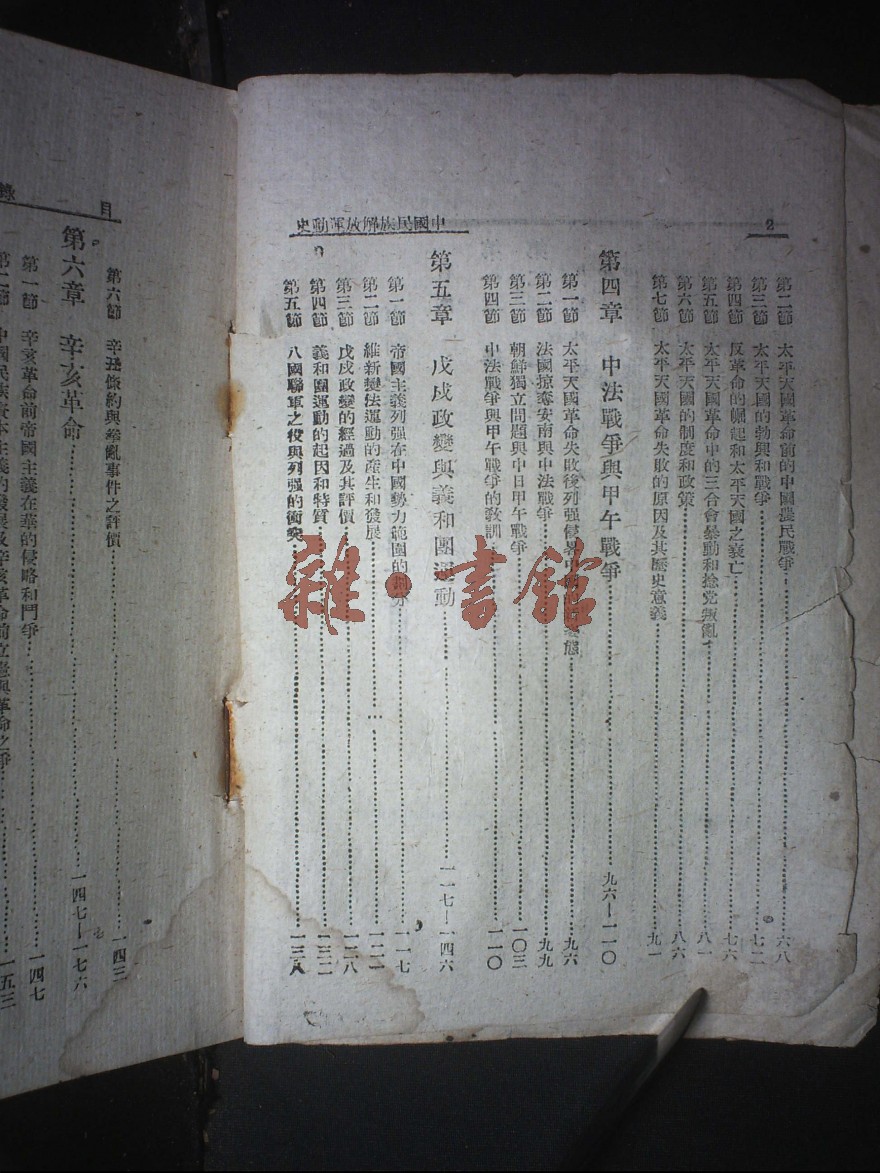 2
中國民族解放運動史
第二節 太平天國革命前的中國農民戰爭……六八
第三節 太平天國的勃興和戰爭……七二
第四節 反革命的崛起和太平天國之衰亡……七六
第五節 太平天國革命中的三合會暴動和捻党叛亂……八一
第六節 太平天國的制度和政策……八六
第七節 太平天國革命失敗的原因及其歷史意義……九一
第四章 中法戰爭與甲午戰爭……九六—一一〇
第一節 太平天國革命失敗後列强侵畧中國的新姿態……九六
第二節 法國掠奪安南與中法戰爭……九九
第三節 朝鮮獨立問題與中日甲午戰爭……一〇三
第四節 中法戰爭與甲午戰爭的教訓……一一〇
第五章 戊戌政變與義和團運動……一一七—一四六
第一節 帝國主義列强在中國勢力範圍的劃分……一一七
第二節 維新變法運動的產生和發展……一二二
第三節 戊戌政變的經過及其評價……一二八
第四節 義和團運動的起因和特質……一三二
第五節 八國聯軍之役與列强的衝突……一三八
雜·書館
目 錄
第六節 辛丑條約與拳亂事件之評價……一四三
第六章 辛亥革命……一四七—一七六
第一節 辛亥革命前帝國主義在華的侵略和鬥爭……一四七
第二節 中國民族資本主義的發展及辛亥革命前立憲與革命之爭……一五三